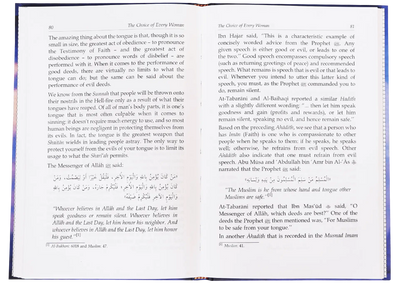 80 The Choice of Every Woman
The amazing thing about the tongue is that, though it is so
small in size, the greatest act of obedience - to pronounce
the Testimony of Faith - and the greatest act of
disobedience - to pronounce words of disbelief - are
performed with it. When it comes to the performance of
good deeds, there are virtually no limits to what the
tongue can do, but the same can be said about the
performance of evil deeds.
We know from the Sunnah that people will be thrown onto
their nostrils in the Hell-fire only as a result of what their
tongues have reaped. Of all of man's body parts, it is one's
tongue that is most often culpable when it comes to
sinning; it doesn't require much energy to use, and so most
human beings are negligent in protecting themselves from
its evils. In fact, the tongue is the greatest weapon that
Shaitan wields in leading people astray. The only way to
protect yourself from the evils of your tongue is to limit its
usage to what the Shari'ah permits.
The Messenger of Allâh said:
"Whoever believes in Allâh and the Last Day, let him
speak goodness or remain silent. Whoever believes in
Allâh and the Last Day, let him honor his neighbor. And
whoever believes in Allâh and the Last Day, let him honor
his guest."
Al-Bukhari: 6018 and Muslim: 47.
The Choice of Every Woman 81
Ibn Hajar said, "This is a characteristic example of
concisely worded advice from the Prophet. Any
given speech is either good or evil, or leads to one of
the two." Good speech encompasses compulsory speech
(such as returning greetings of peace) and recommended
speech. What remains is speech that is evil or that leads to
evil. Whenever you intend to utter this latter kind of
speech, you must, as the Prophet commanded you to
do, remain silent.
At-Tabarani and Al-Baihaqi reported a similar Hadith
with a slightly different wording: "... then let him speak
goodness and gain (profits and rewards), or let him
remain silent, speaking no evil, and hence remain safe."
Based on the preceding Ahadith, we see that a person who
has Iman (Faith) is one who is compassionate to other
people when he speaks to them; if he speaks, he speaks
well; otherwise, he refrains from evil speech. Other
Ahadith also indicate that one must refrain from evil
speech. Abu Musa and 'Abdullah bin 'Amr bin Al-'As
narrated that the Prophet said:
"The Muslim is he from whose hand and tongue other
Muslims are safe."
At-Tabarani reported that Ibn Mas'ud said, "O
Messenger of Allâh, which deeds are best?" One of the
deeds the Prophet then mentioned was, "For Muslims
to be safe from your tongue."
In another Ahadith that is recorded in the Musnad Imam
Muslim: 41.